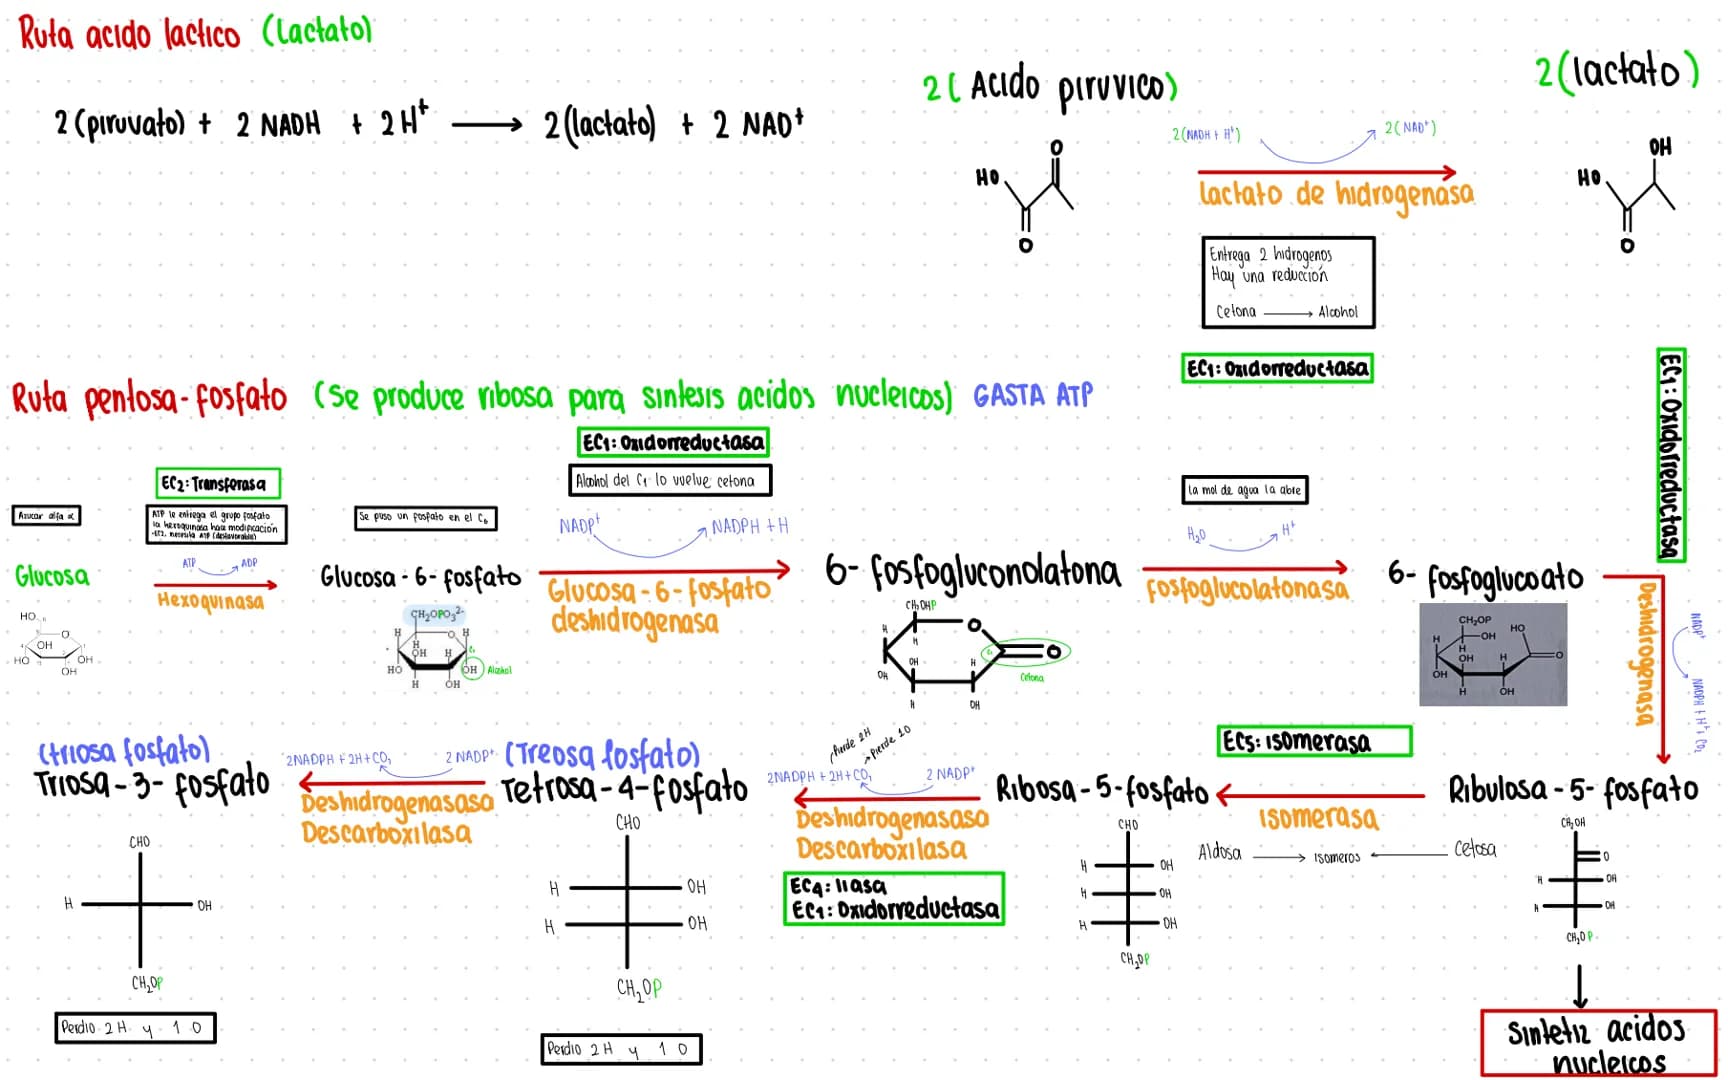 Ruta acido lactico (Lactato)
2 (piruvato) + 2 NADH + 2 H⁺ → 2 (lactato) + 2 NAD⁺
2 ( Acido piruvico)
2 (lactato)
2 (NADH + H⁺)
2 ( NAD⁺)
lactato de hidrogenasa
HO
O
O
HO
OH
O
Entrega 2 hidrogenos
Hay una reducción
Cetona → Alcohol
EC1: Oxidorreductasa
Ruta pentosa - fosfato (Se produce ribosa para sintesis acidos nucleicos) GASTA ATP
Azucar alfa α
Glucosa
HO
6
5
O
OH
HO
OH
OH
EC2: Transferasa
ATP le entrega el grupo fosfato
la hexoquinasa hace modificación
-EC2, necesita ATP (desfavorable)
ATP
ADP
Hexoquinasa
Se puso un fosfato en el C6
Glucosa - 6 - fosfato
CH₂OPO₃²⁻
H
O
H
H
OH
H
C1
HO
OH
Alcohol
H
OH
EC1: Oxidorreductasa
Alcohol del C1 lo vuelve cetona
NADP⁺
NADPH + H
Glucosa - 6 - fosfato
deshidrogenasa
6 - fosfogluconolatona
CH₂OHP
O
H
H
OH
H
C1
O
OH
Cetona
H
OH
La mol de agua la abre
H₂O
H⁺
Fosfoglucolatonasa
6 - fosfoglucoato
CH₂OP
HO
H
OH
H
OH
H
O
OH
H
OH
EC1: Oxidorreductasa
Deshidrogenasa
NADP⁺
NADPH + H⁺ + CO₂
Ribulosa - 5 - fosfato
CH₂OH
O
H
OH
H
OH
CH₂OP
Sintetiz acidos
nucleicos
EC5: isomerasa
isomerasa
Aldosa → isomeros ← Cetosa
Ribosa - 5 - fosfato
CHO
H
OH
H
OH
H
OH
CH₂OP
Pierde 2H
Pierde 1O
2NADPH + 2H + CO₂
2 NADP⁺
Deshidrogenasaso
Descarboxilasa
EC4: liasa
EC1: Oxidorreductasa
(Treosa fosfato)
Tetrosa - 4 - fosfato
CHO
H
OH
H
OH
CH₂OP
Perdio 2 H y 1 O
2NADPH + 2H + CO₂
2 NADP⁺
Deshidrogenasaso
Descarboxilasa
(triosa fosfato)
Triosa - 3 - fosfato
CHO
H
OH
CH₂OP
Perdio 2 H y 1 O